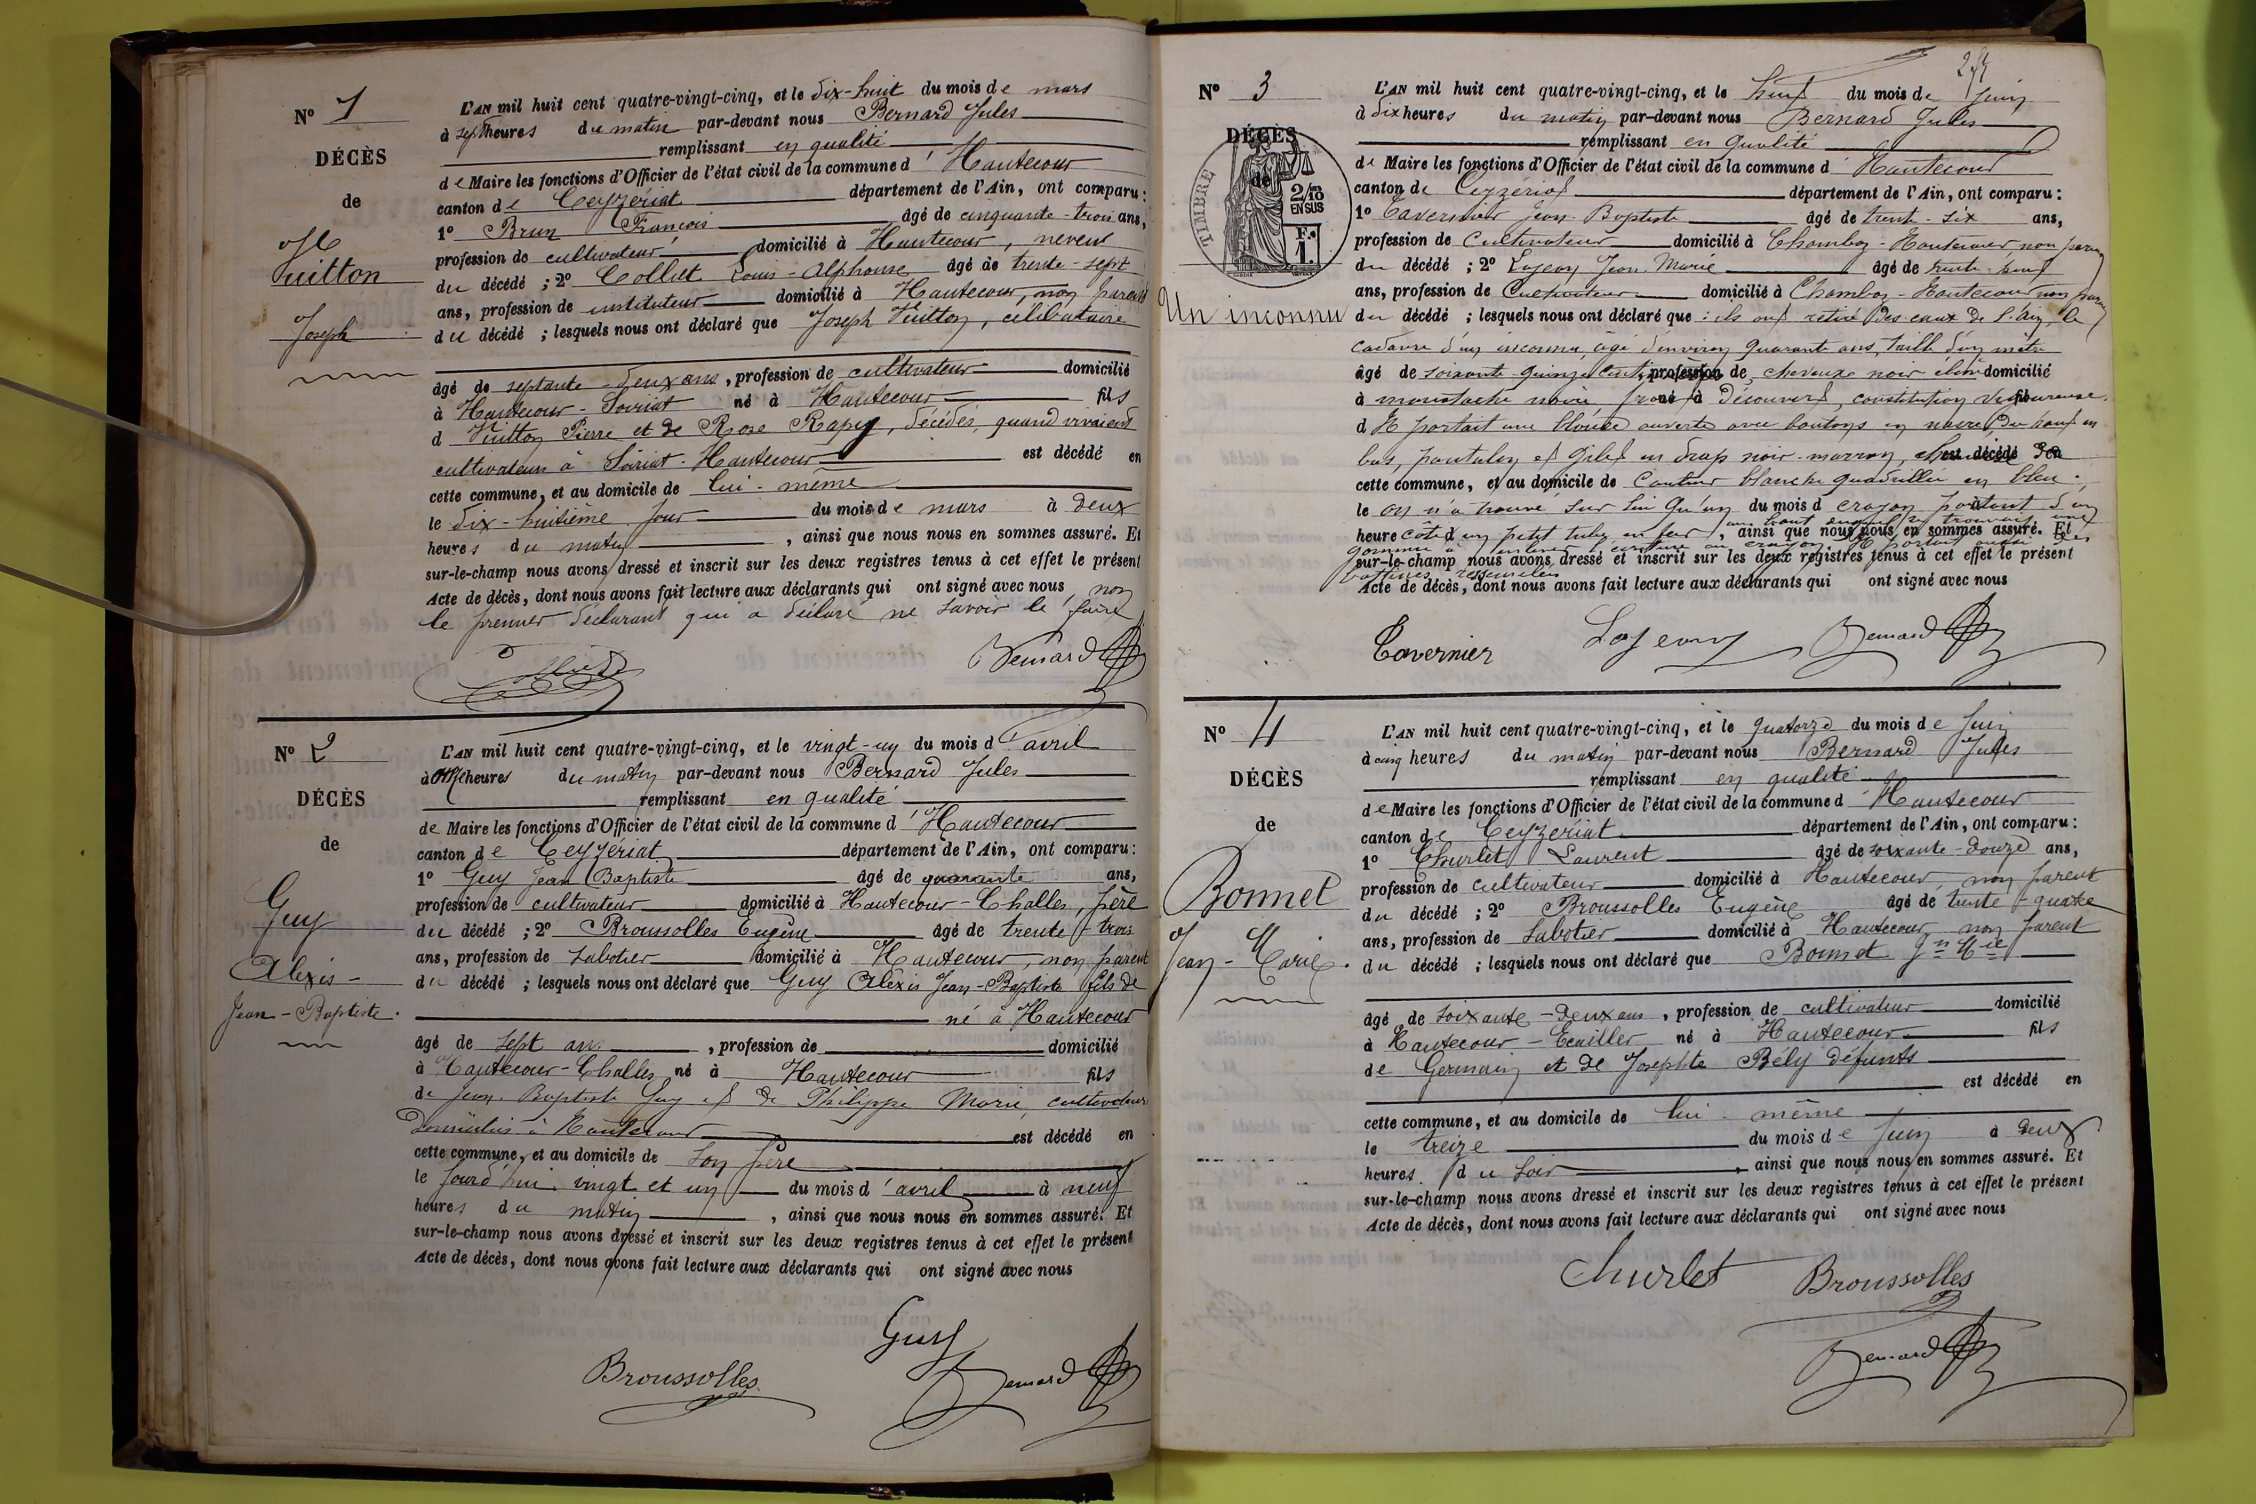 N° 1
DÉCÈS
de
Vuitton
Joseph
L'AN mil huit cent quatre-vingt-cinq, et le dix-huit du mois de mars
à sept heures du matin par-devant nous Bernard Jules
remplissant en qualité
de Maire les fonctions d'Officier de l'état civil de la commune d'Hautecour
canton de Ceyzériat département de l'Ain, ont comparu :
1° Brun François âgé de cinquante-trois ans,
profession de cultivateur domicilié à Hautecour, neveu
du décédé ; 2° Collet Louis-Alphonse âgé de trente-sept
ans, profession de instituteur domicilié à Hautecour, non parent
du décédé ; lesquels nous ont déclaré que Joseph Vuitton, célibataire
âgé de septante-deux ans, profession de cultivateur domicilié
à Hautecour-Soiriat né à Hautecour fils
d Vuitton Pierre et de Rose Rapy, décédés, quand vivaient
cultivateurs à Soiriat-Hautecour est décédé en
cette commune, et au domicile de lui-même
le dix-huitième jour du mois de mars à deux
heures du matin, ainsi que nous nous en sommes assuré. Et
sur-le-champ nous avons dressé et inscrit sur les deux registres tenus à cet effet le présent
Acte de décès, dont nous avons fait lecture aux déclarants qui ont signé avec nous, non
le premier déclarant qui a déclaré ne savoir le faire
Bernard
N° 2
DÉCÈS
de
Guy
Alexis-
Jean-Baptiste.
L'AN mil huit cent quatre-vingt-cinq, et le vingt-un du mois d'avril
à onze heures du matin par-devant nous Bernard Jules
remplissant en qualité
de Maire les fonctions d'Officier de l'état civil de la commune d'Hautecour
canton de Ceyzériat département de l'Ain, ont comparu :
1° Guy Jean Baptiste âgé de quarante ans,
profession de cultivateur domicilié à Hautecour-Challes, père
du décédé ; 2° Broussolles Eugène âgé de trente-trois
ans, profession de sabotier domicilié à Hautecour, non parent
du décédé ; lesquels nous ont déclaré que Guy Alexis Jean-Baptiste fils de
né à Hautecour
âgé de sept ans, profession de domicilié
à Hautecour-Challes né à Hautecour fils
de Jean-Baptiste Guy et de Philippe Marie, cultivateurs
domiciliés à Hautecour est décédé en
cette commune, et au domicile de son père
le jourd'hui vingt et un du mois d'avril à neuf
heures du matin, ainsi que nous nous en sommes assuré. Et
sur-le-champ nous avons dressé et inscrit sur les deux registres tenus à cet effet le présent
Acte de décès, dont nous avons fait lecture aux déclarants qui ont signé avec nous
Guy
Broussolles
Bernard
N° 3
DÉCÈS
de
TIMBRE
2/10 EN SUS
F. 1.
Un inconnu
L'AN mil huit cent quatre-vingt-cinq, et le huit du mois de juin
à dix heures du matin par-devant nous Bernard Jules
remplissant en qualité
de Maire les fonctions d'Officier de l'état civil de la commune d'Hautecour
canton de Ceyzériat département de l'Ain, ont comparu :
1° Tavernier Jean-Baptiste âgé de trente-six ans,
profession de cultivateur domicilié à Chambos-Hautecour non parent
du décédé ; 2° Lajeony Jean-Marie âgé de trente-neuf
ans, profession de cultivateur domicilié à Chambos-Hautecour non parent
du décédé ; lesquels nous ont déclaré que : ils ont retiré des eaux de l'Ain, le
cadavre d'un inconnu, âgé d'environ quarante ans, taille d'un mètre
âgé de soixante-quinze cent. profession de cheveux noir domicilié
à moustache noire, front né à découvert, constitution vigoureuse.
d Il portait une blouse ouverte avec boutons en nacre, du haut en
bas, pantalon et gilet en drap noir-marron, est décédé en
cette commune, et au domicile de couleur blanche quadrillée en bleu.
le on n'a trouvé sur lui qu'un du mois d crayon portant d'un
heure côté un petit tube en fer, ainsi que nous nous en sommes assuré. Et
au bout duquel se trouvait une
gomme à enlever l'écriture au crayon. Il portait aussi des
sur-le-champ nous avons dressé et inscrit sur les deux registres tenus à cet effet le présent
bottines ressemelées
Acte de décès, dont nous avons fait lecture aux déclarants qui ont signé avec nous
Tavernier Lajeony Bernard
N° 4
DÉCÈS
de
Bonnet
Jean-Marie.
L'AN mil huit cent quatre-vingt-cinq, et le quatorze du mois de juin
à cinq heures du matin par-devant nous Bernard Jules
remplissant en qualité
de Maire les fonctions d'Officier de l'état civil de la commune d'Hautecour
canton de Ceyzeriat département de l'Ain, ont comparu :
1° Churlet Laurent âgé de soixante-douze ans,
profession de cultivateur domicilié à Hautecour, non parent
du décédé ; 2° Broussolles Eugène âgé de trente-quatre
ans, profession de sabotier domicilié à Hautecour, non parent
du décédé ; lesquels nous ont déclaré que Bonnet Jn Mie
âgé de soixante-deux ans, profession de cultivateur domicilié
à Hautecour-Ecuiller né à Hautecour fils
de Germain et de Josephte Bély défunts
est décédé en
cette commune, et au domicile de lui-même
le treize du mois de juin à deux
heures du soir, ainsi que nous nous en sommes assuré. Et
sur-le-champ nous avons dressé et inscrit sur les deux registres tenus à cet effet le présent
Acte de décès, dont nous avons fait lecture aux déclarants qui ont signé avec nous
Churlet Broussolles
Bernard